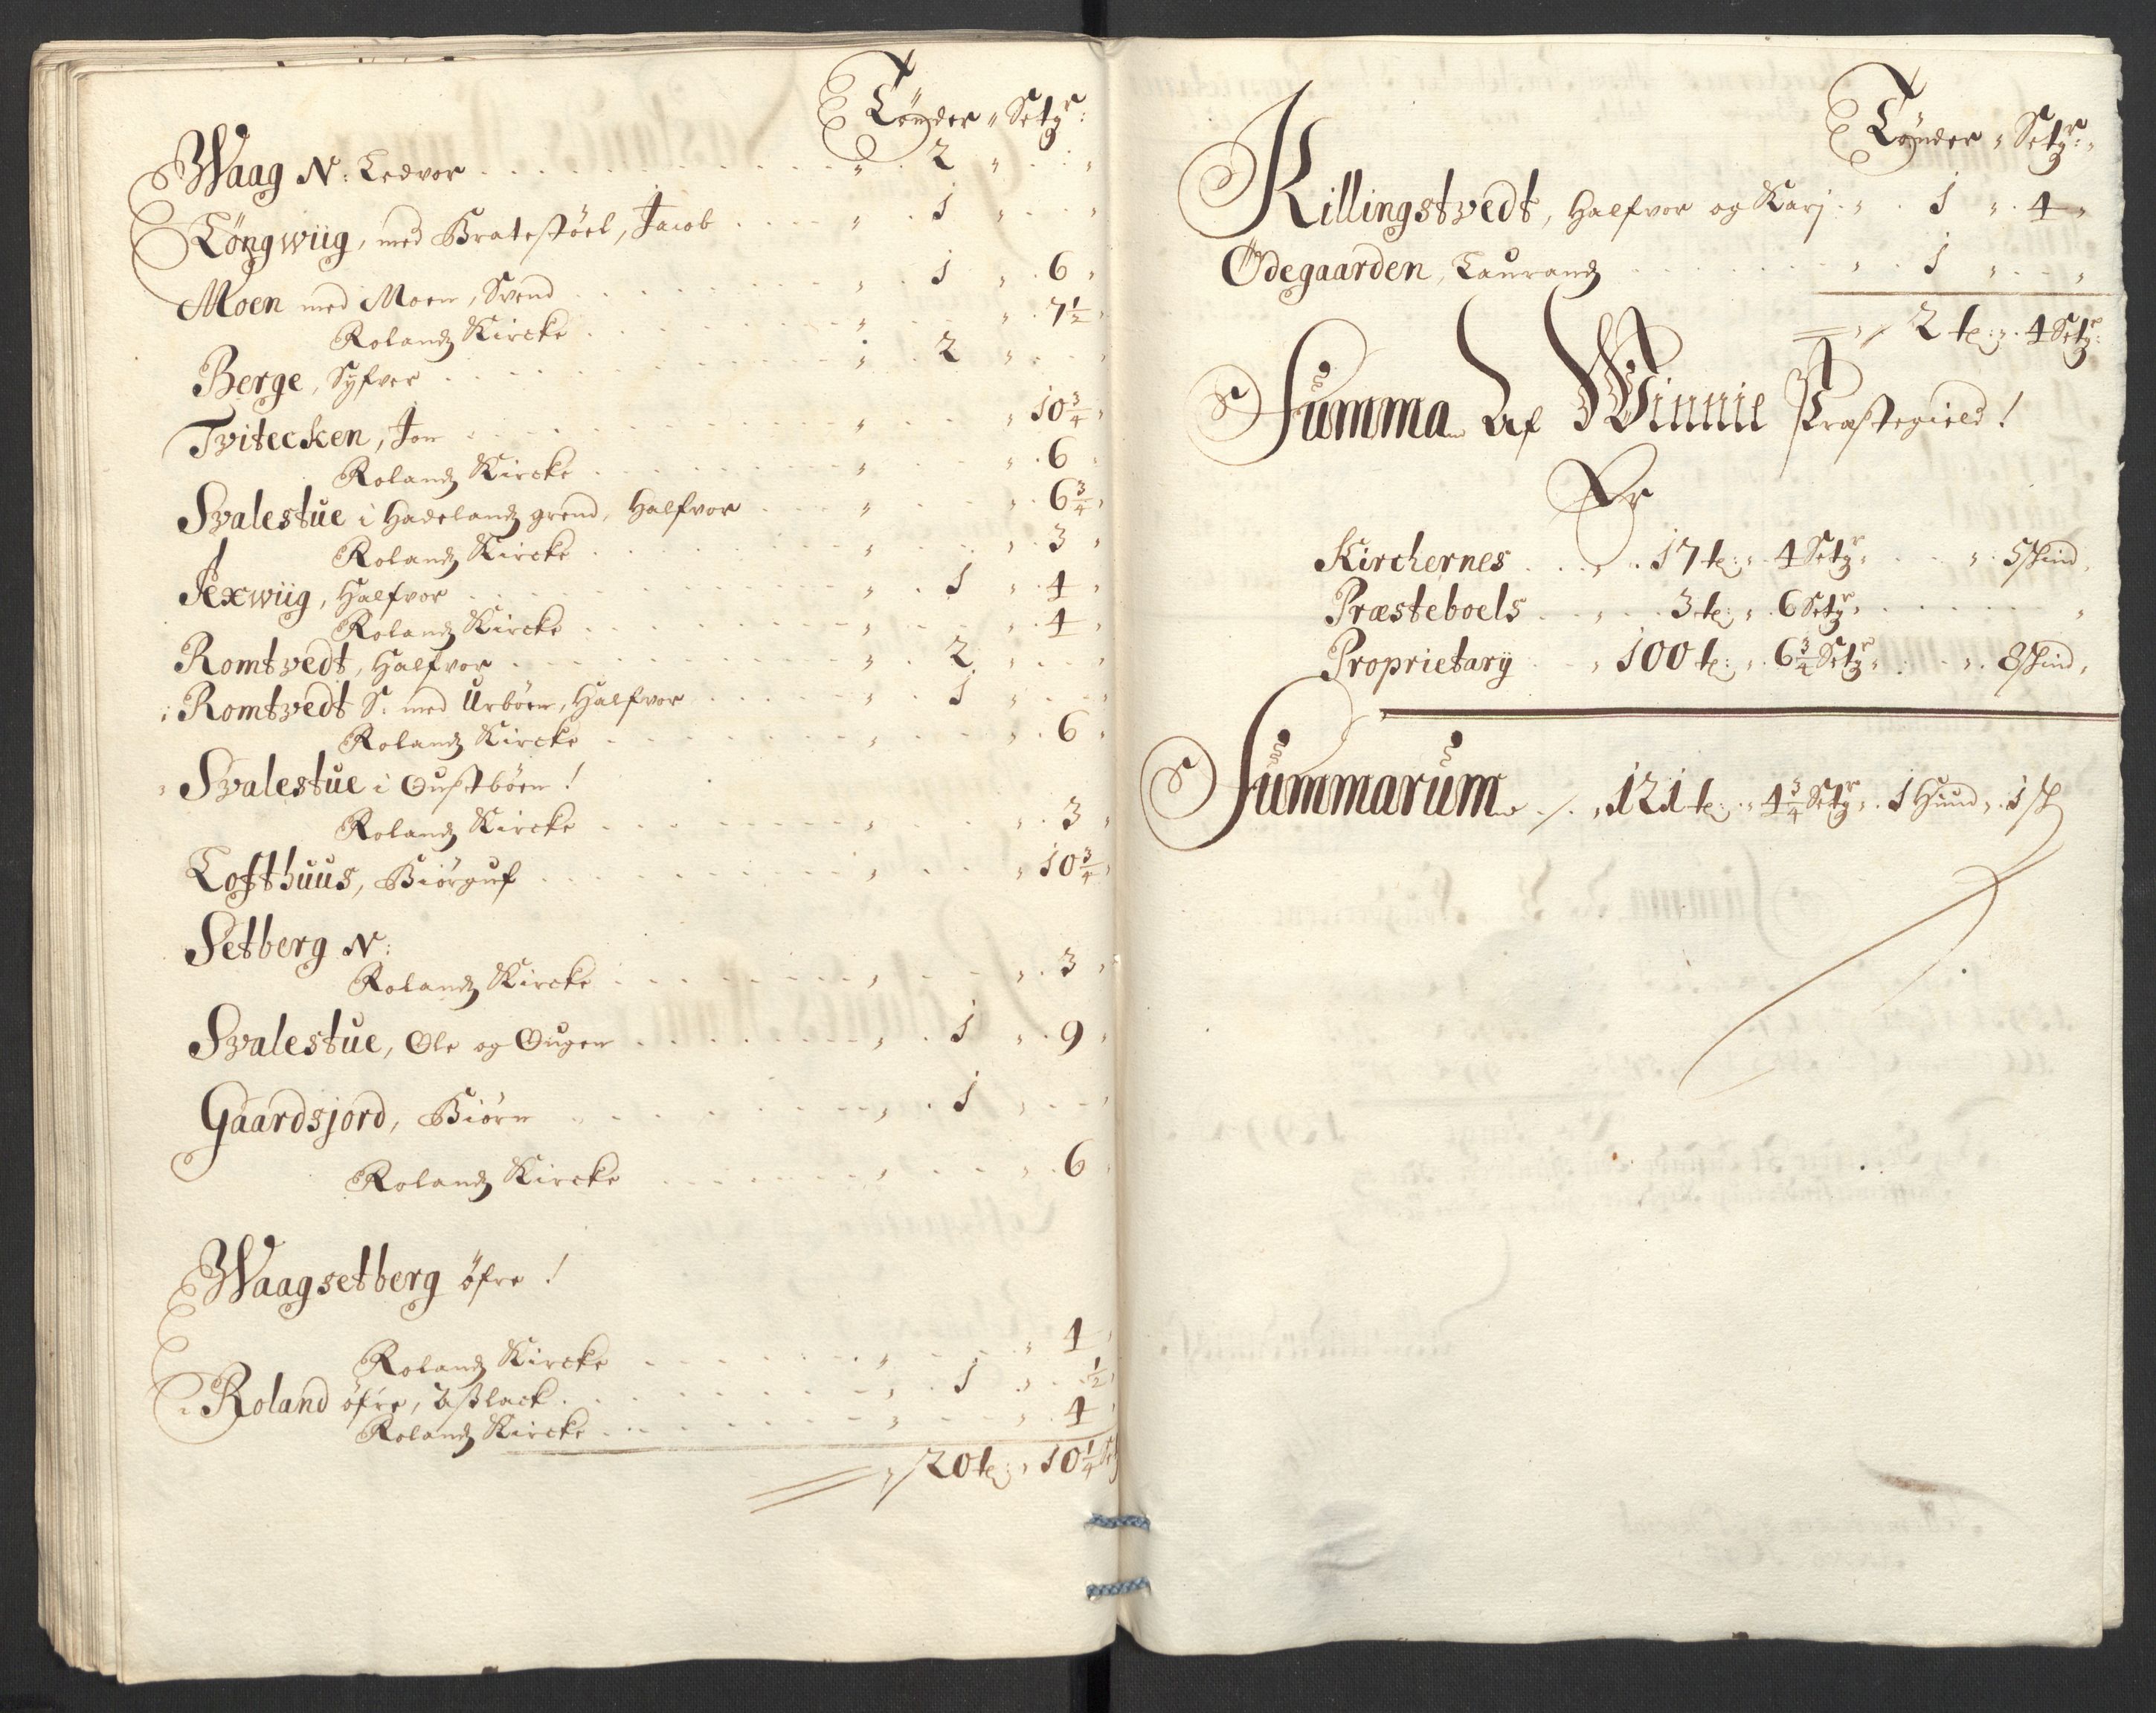 Tönder " Setgr:
Waag N: Ledvor . . . " . 2 " . . "
Töngwiig, med Bratestöel, Jacob . . . " . 1 " . . "
Moen med Moen, Svend . . . " . 1 " . 6 "
Rolandz Kircke . . . " . . " . 7 1/2 "
Berge, Syfver . . . " . 2 " . . "
Tvitecken, Jon . . . " . . " 10 3/4 "
Rolandz Kircke . . . " . . " . 6 "
Svalestue i Hadelandz grend, Halfvor . . . " . . " . 6 3/4 "
Rolandz Kircke . . . " . . " . 3 "
Sexwiig, Halfvor . . . " . 1 " . 4 "
Rolandz Kircke . . . " . . " . 4 "
Romtvedt, Halfvor . . . " . 2 " . . "
Romtvedt S. med Urböen, Halfvor . . . " . 1 " . . "
Rolandz Kircke . . . " . . " . 6 "
Svalestue i Oustböen !
Rolandz Kircke . . . " . . " . 3 "
Lofthuus, Biörguf . . . " . . " 10 3/4 "
Setberg N:
Rolandz Kircke . . . " . . " . 3 "
Svalestue, Ole og Ougen . . . " . 1 " . 9 "
Gaardsjord, Biörn . . . " . 1 " . . "
Rolandz Kircke . . . " . . " . 6 "
Waagsetberg öfre !
Rolandz Kircke . . . " . . " 4 "
Roland öfre, Asslack . . . " . 1 " . 1/2 "
Rolandz Kircke . . . " . . " . 4 "
20 te: " 10 1/4
Tönder " Setgr: "
Killingstvedt, Halfvor og Karj: " . 1 " . 4 "
Ödegaarden, Taurand . . . " . 1 " . . "
2 te: " 4 Setgr:
Summa Af Winnie Præstegield !
Er
Kirchernes . . " . 17 te: " 4 Setgr " . . " . 5 skind "
Præsteboels . . " . . 3 te: " . 6 Setgr " . . "
Proprietary . . " 100 te: " . 6 3/4 Setgr " . . " . 8 skind "
Summarum ./. " 121 te: " 4 3/4 Setgr " . 1 Huud " . 1 sk